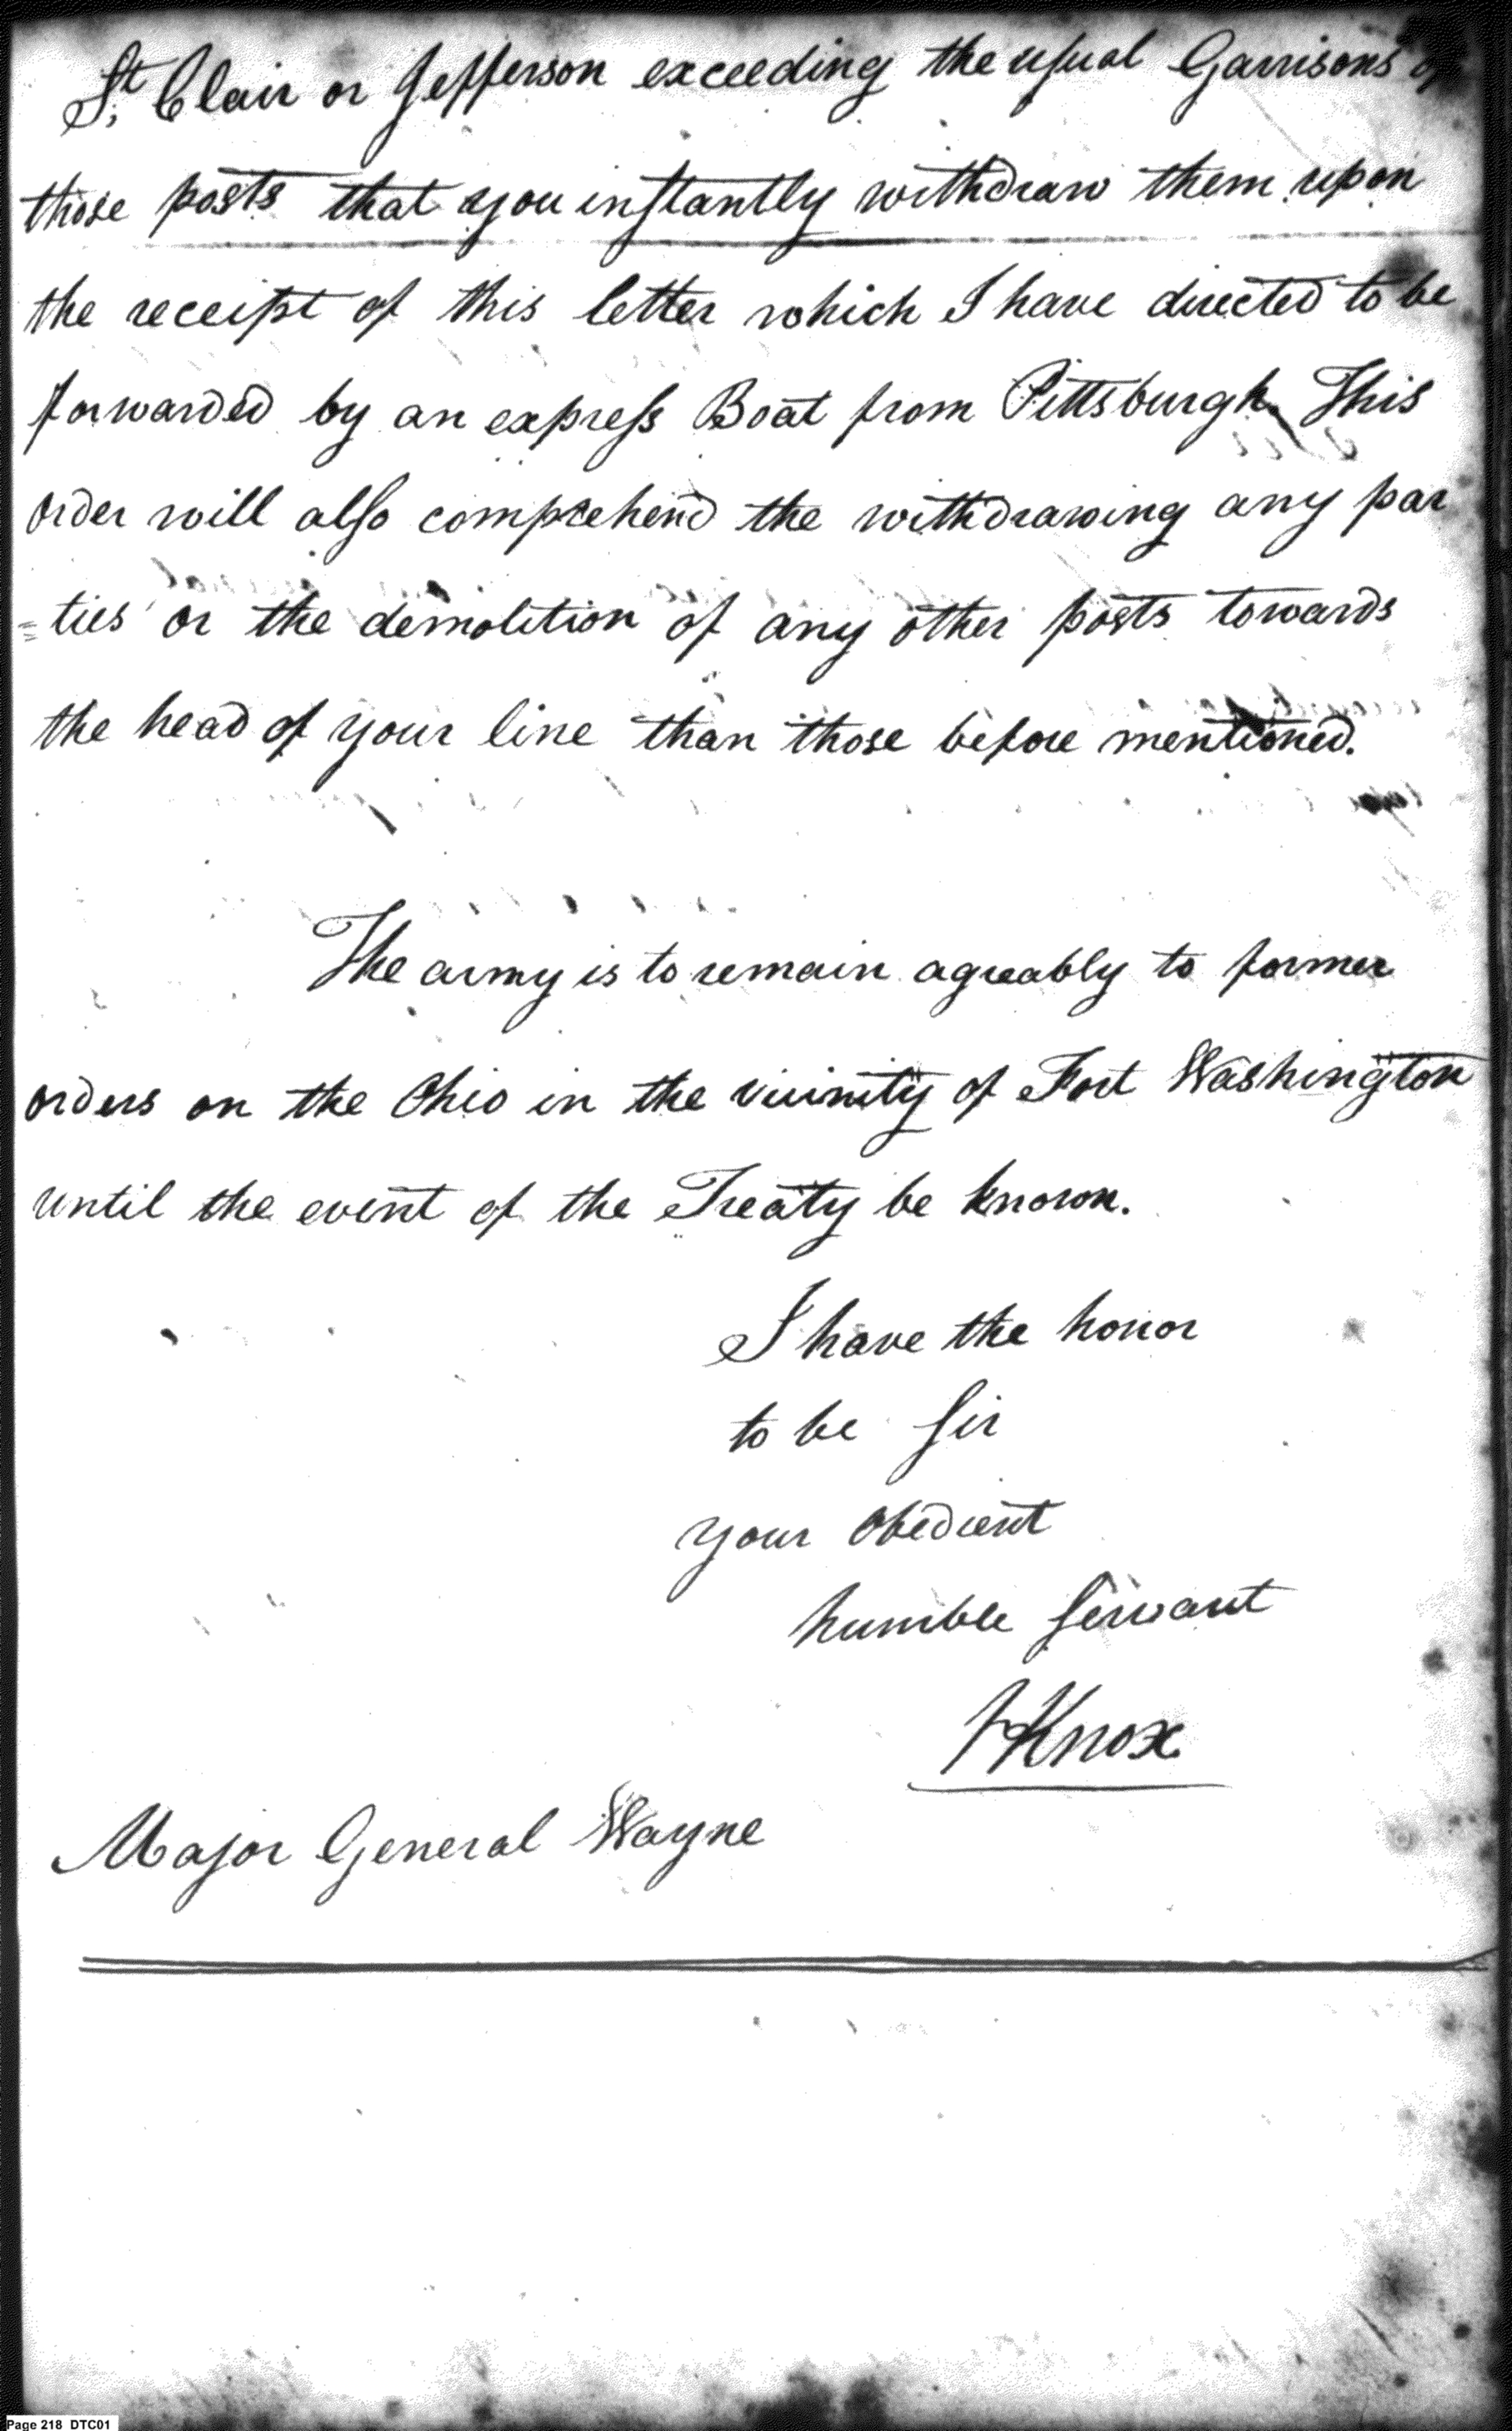 St. Clair or Jefferson exceeding the usual Garrisons of
those posts that you instantly withdraw them upon
the receipt of this letter which I have directed to be
forwarded by an express Boat from Pittsburgh. This
order will also comprehend the withdrawing any par
=ties or the demolition of any other posts towards
the head of your line than those before mentioned.
The army is to remain agreably to former
orders on the Ohio in the vicinity of Fort Washington
until the event of the Treaty be known.
I have the honor
to be Sir
your obedient
humble servant
HKnox
Major General Wayne
Page 218 DTC01